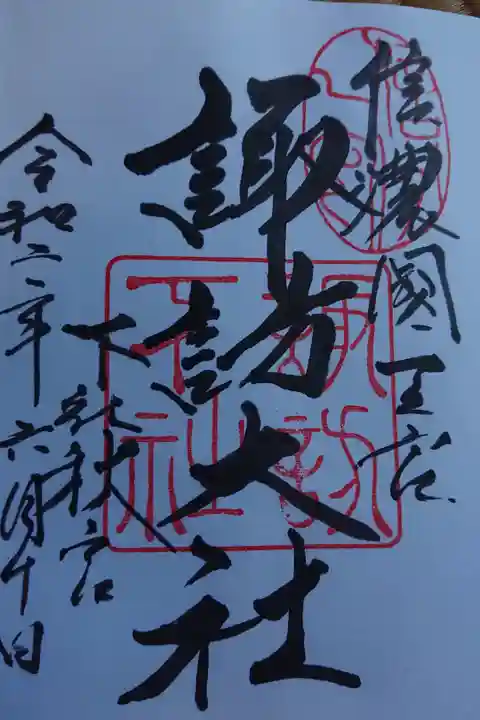 信濃國一之宮
諏訪大社
下社秋宮
令和二年六月十日
諏訪
下社